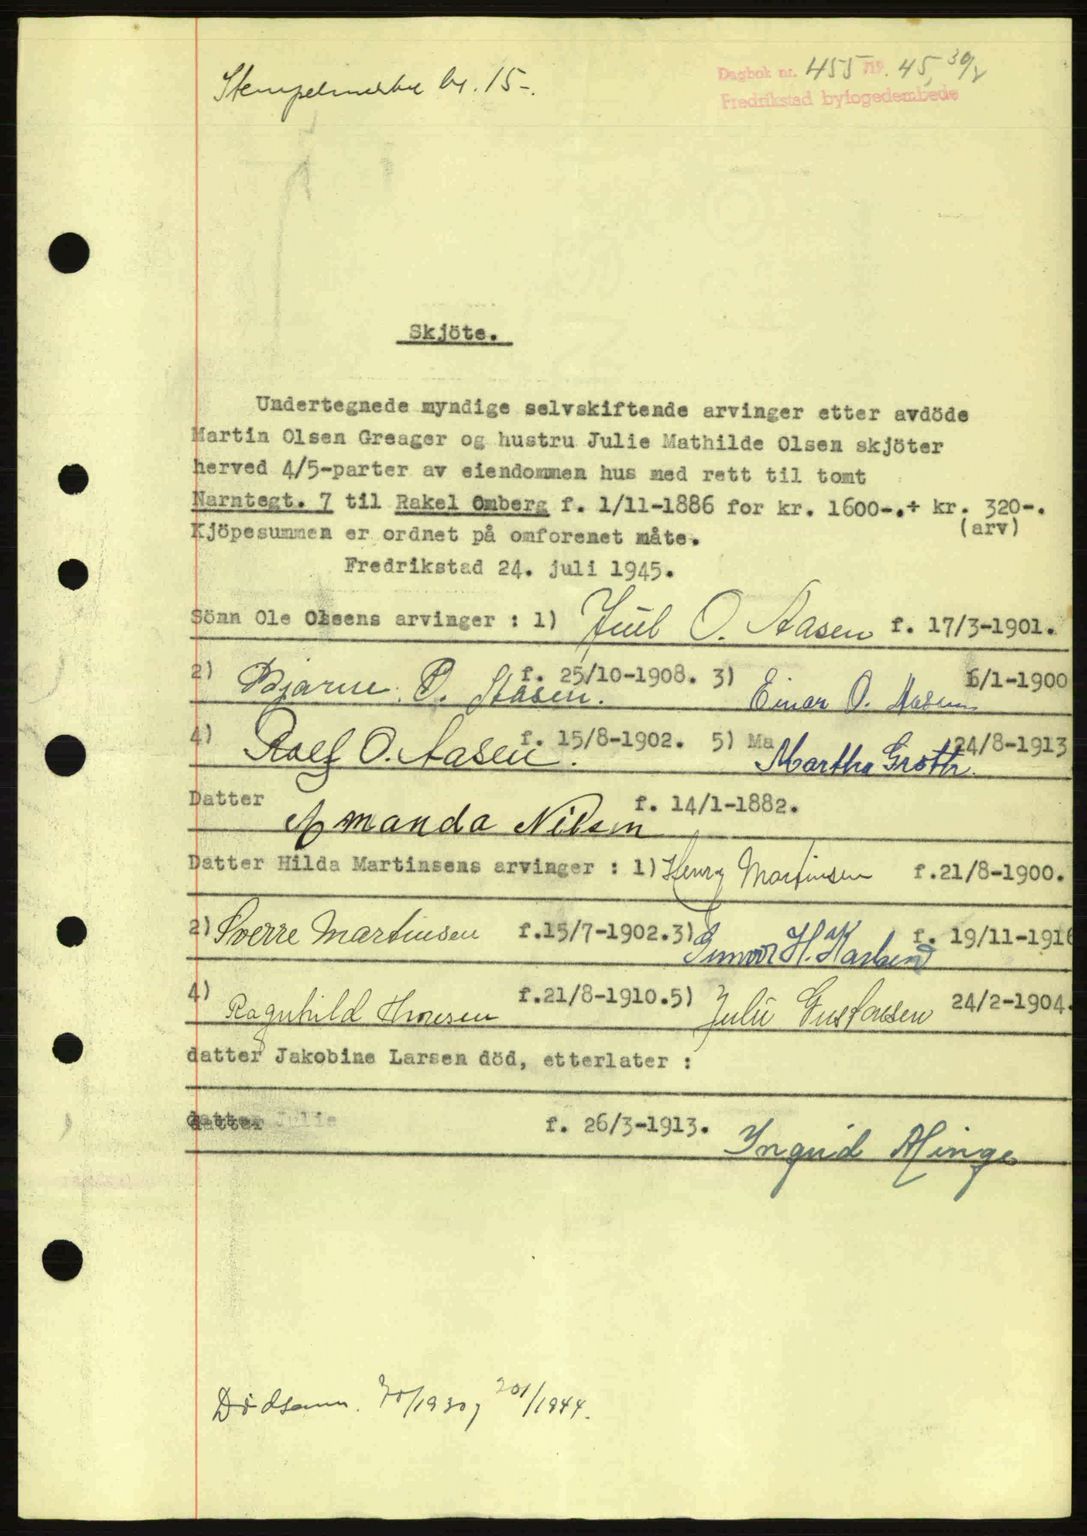 Stempelmerke kr. 15-.
Dagbok nr. 455 /19 45, 30/
Fredrikstad byfogedembede
Skjöte.
Undertegnede myndige selvskiftende arvinger etter avdöde
Martin Olsen Greager og hustru Julie Mathilde Olsen skjöter
herved 4/5-parter av eiendommen hus med rett til tomt
Narntegt. 7 til Rakel Omberg f. 1/11-1886 for kr. 1600-.+ kr. 320-.
(arv)
Kjöpesummen er ordnet på omforenet måte.
Fredrikstad 24. juli 1945.
Sönn Ole Olsens arvinger : 1) Juul O. Aasen f. 17/3-1901.
2) Bjarne O. Aasen. f. 25/10-1908. 3) Einar O. Aasen 6/1-1900
4) Rolf O. Aasen. f. 15/8-1902. 5) Ma Martha Groth. 24/8-1913
Datter Amanda Nilsen f. 14/1-1882.
Datter Hilda Martinsens arvinger : 1) Henry Martinsen f.21/8-1900.
2) Sverre Martinsen f.15/7-1902.3) Gunvor H. Karlsen f. 19/11-1916
4) Ragnhild Thoresen f.21/8-1910.5) Julie Gustavsen 24/2-1904.
datter Jakobine Larsen död, etterlater :
datter Julie f. 26/3-1913. Ingrid Minge
Dödsann. /1930, /1944.